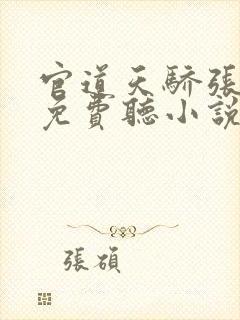 官道天驕張
免費聽小說
張碩